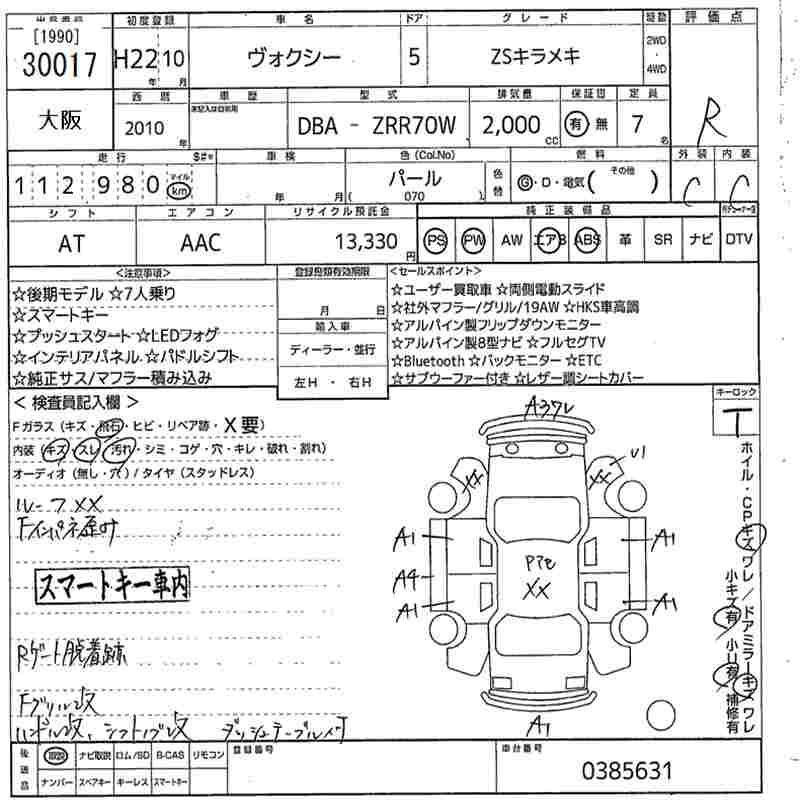 出品番号 初度登録 車名 ドア グレード 駆動 評価点
[1990]
30017 H22 10 ヴォクシー 5 ZSキラメキ 2WD・4WD R
年 月
大阪 西暦 車歴 型式 排気量 保証書 定員
2010年 未記入は自家用 DBA - ZRR70W 2,000cc 有 無 7名
走行 $#* 車検 色(Col.No) 色替 燃料 外装 内装
112980 マイル km 年 月 パール (070) G・D・電気( その他 ) C C
シフト エアコン リサイクル預託金 純正装備品
AT AAC 13,330円 PS PW AW エアB ABS 革 SR ナビ DTV
<注意事項> 登録書類有効期限 <セールスポイント>
☆後期モデル ☆7人乗り
☆スマートキー
☆プッシュスタート ☆LEDフォグ
☆インテリアパネル ☆パドルシフト
☆純正サス/マフラー積み込み
月 日
輸入車
ディーラー・並行
左H ・ 右H
☆ユーザー買取車 ☆両側電動スライド
☆社外マフラー/グリル/19AW ☆HKS車高調
☆アルパイン製フリップダウンモニター
☆アルパイン製8型ナビ ☆フルセグTV
☆Bluetooth ☆バックモニター ☆ETC
☆サブウーファー付き ☆レザー調シートカバー
< 検査員記入欄 >
Fガラス (キズ・飛石・ヒビ・リペア跡・X要)
内装 (キズ・スレ・汚れ・シミ・コゲ・穴・キレ・破れ・割れ)
オーディオ (無し・穴) / タイヤ (スタッドレス)
ルーフXX
Fインパネ歪み
スマートキー車内
Rゲート脱着跡
Fグリル改
ハンドル改、シフトノブ改 ダッシュテーブル〆
キーロック
T
ホイル・CPキズワレ/ドアミラーキズワレ
小キズ有 小U有 補修有
XX
XX U1
A1 A1
P72
XX
A4
A1 A1
A1
後送品 取説 ナビ取説 ロム/SD B-CAS リモコン 登録番号 車台番号
ナンバー スペアキー キーレス スマートキー 0385631